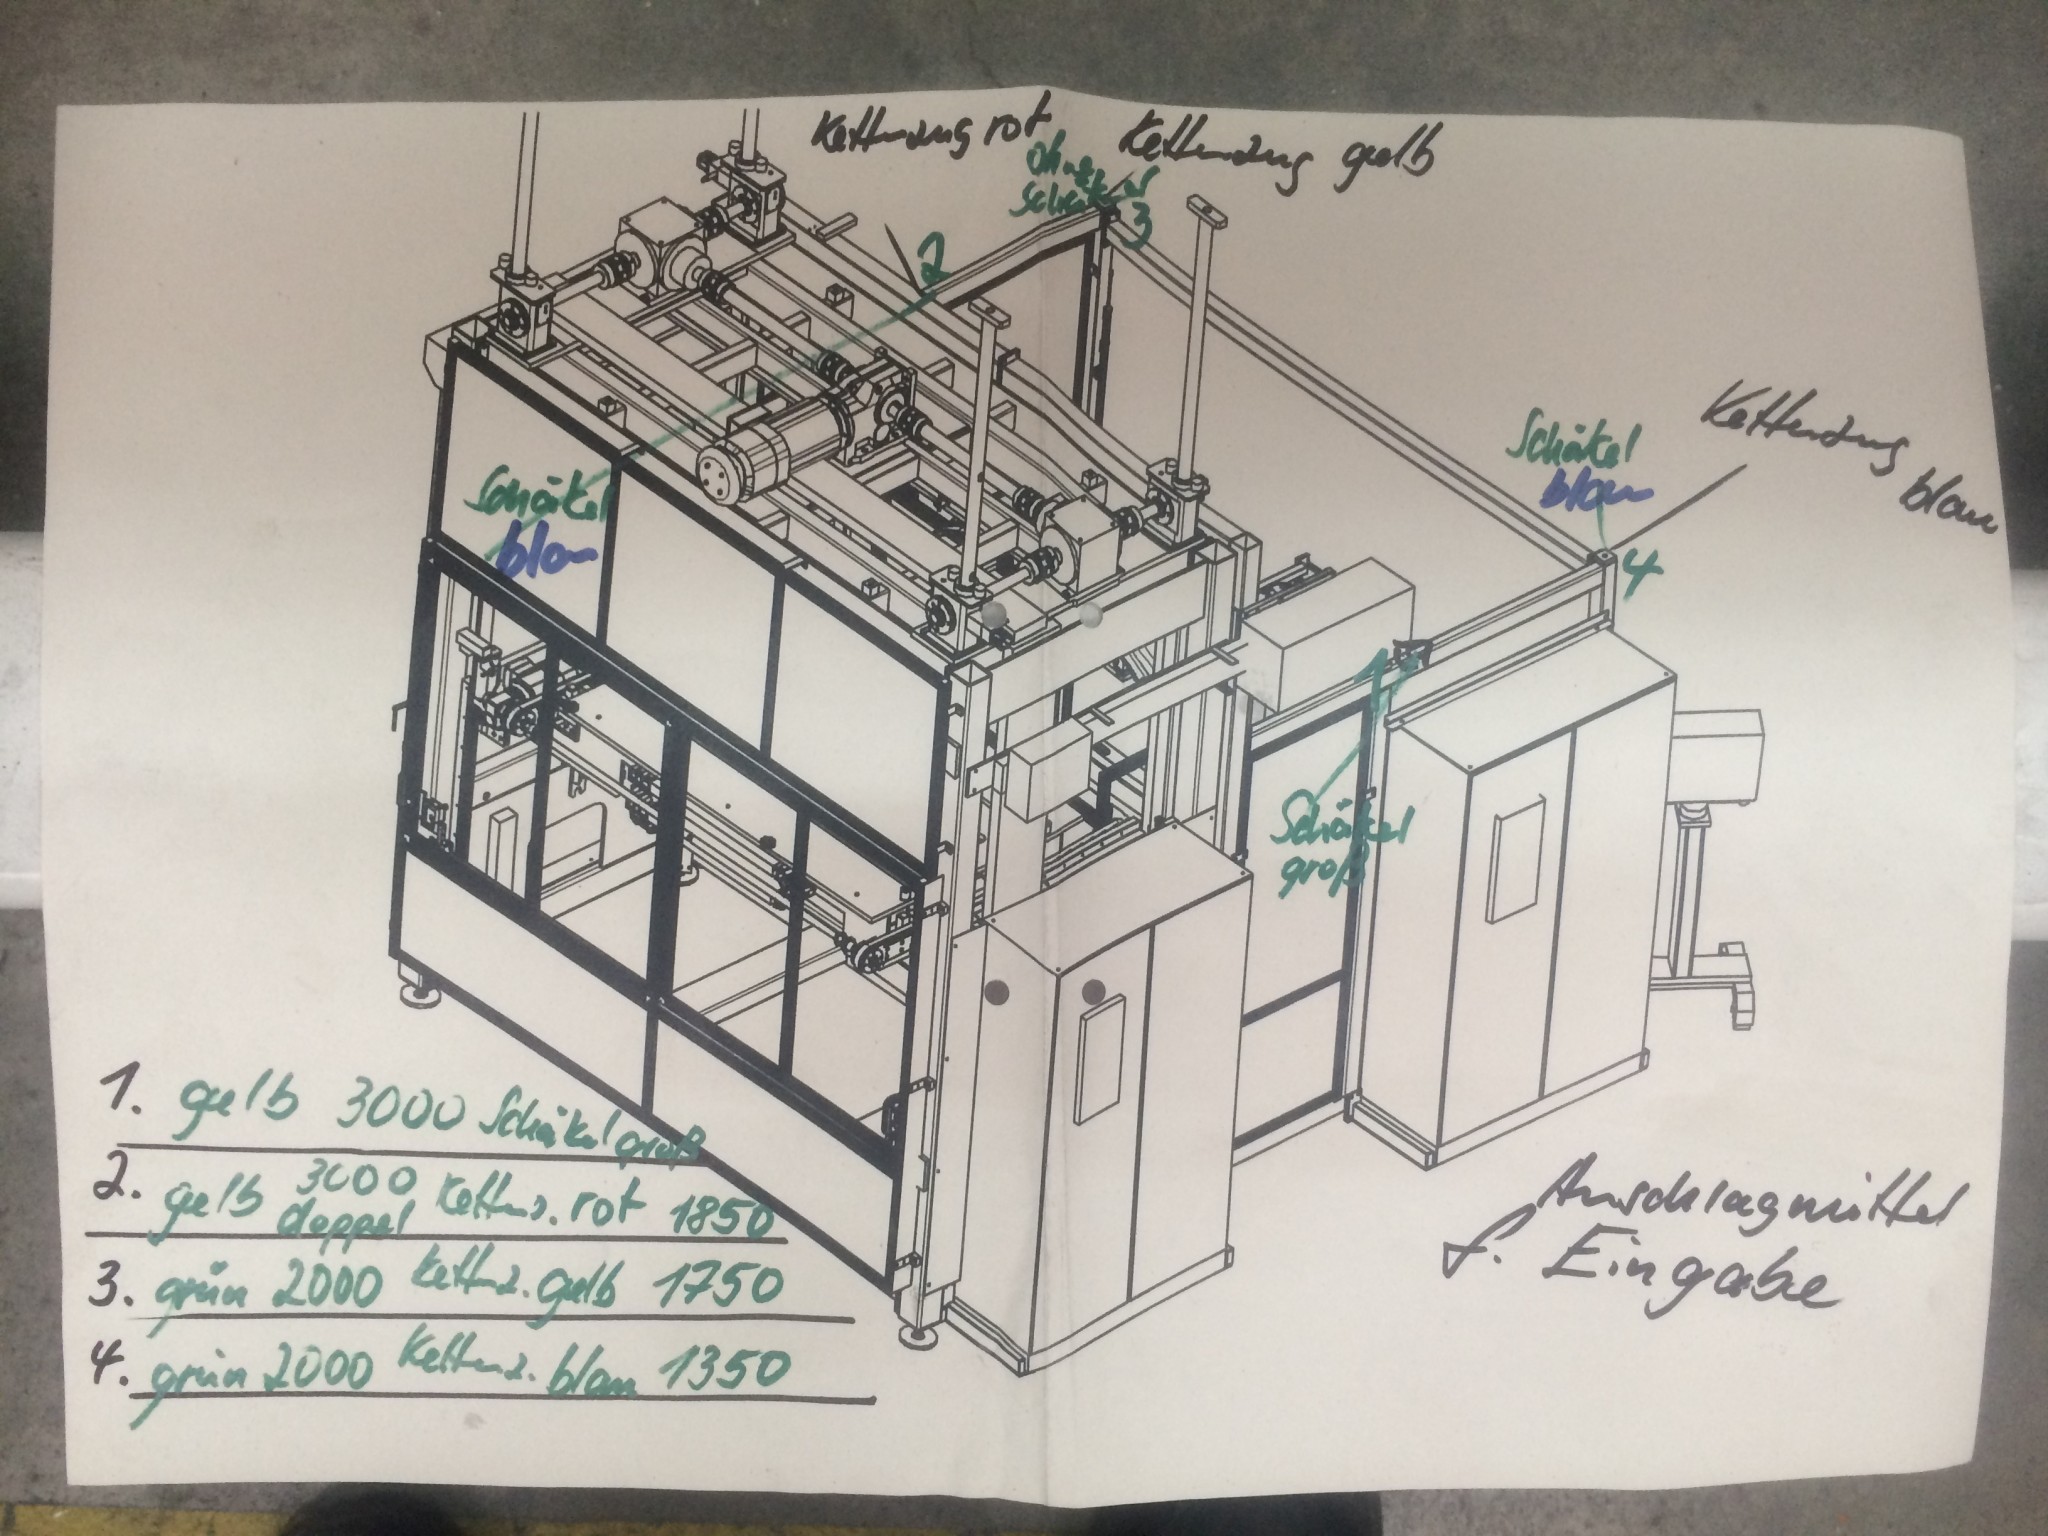 Kettenzug rot
Kettenzug gelb
ohne
Schäkel
3
2
Kettenzug
blau
Schäkel
blau
4
Schäkel
blau
1
Schäkel
groß
1. gelb 3000 Schäkel groß
2. gelb 3000 doppel Kettenz. rot 1850
3. grün 2000 Kettenz. gelb 1750
4. grün 2000 Kettenz. blau 1350
Anschlagmittel
f. Eingabe